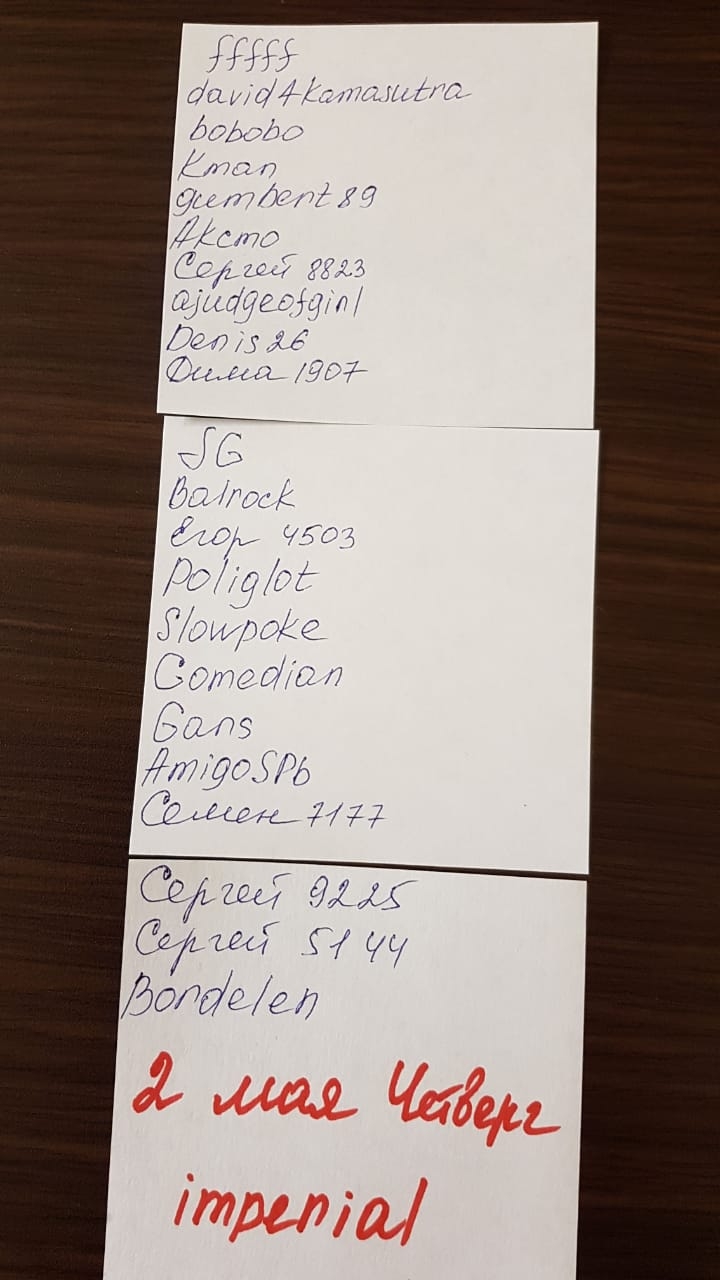 fffff
david4kamasutra
bobobo
Kman
gumbert89
Аксто
Сергей 8823
ajudgeofgirl
Denis26
Дима 1907
SG
Balrock
Егор 4503
Poliglot
Slowpoke
Comedian
Gans
AmigoSPb
Семен 7177
Сергей 9225
Сергей 5144
Bordelen
2 мая Четверг
imperial